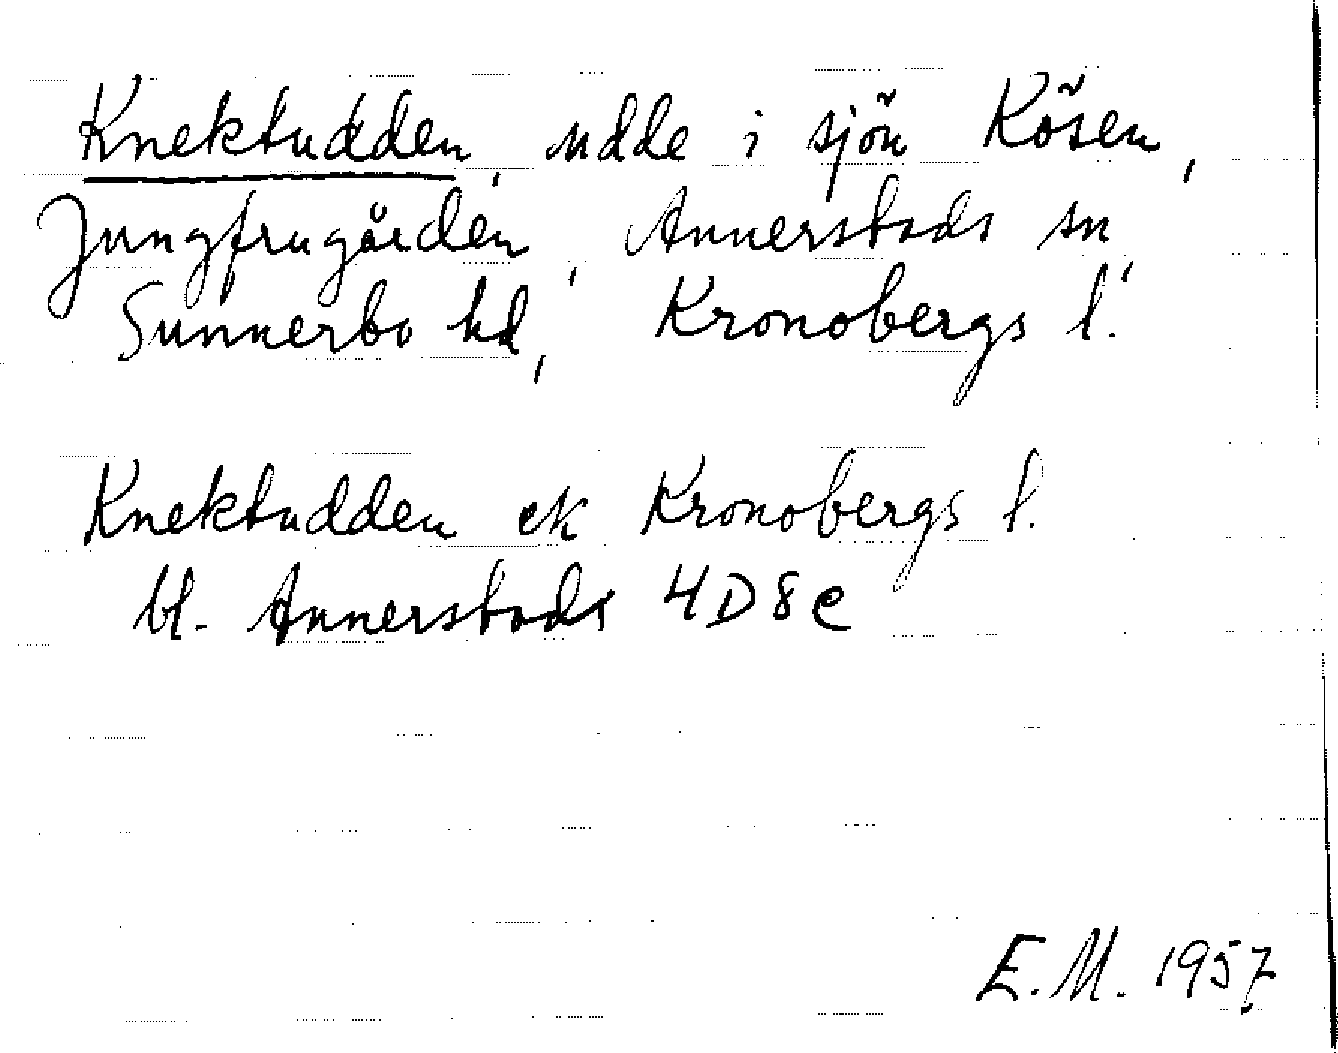 Knektudden, udde i sjön Kösen,
Jungfrugården, Annerstads sn,
Sunnerbo hd, Kronobergs l.
Knektudden ek Kronobergs l.
bl. Annerstads 4D8e
E.M. 1957